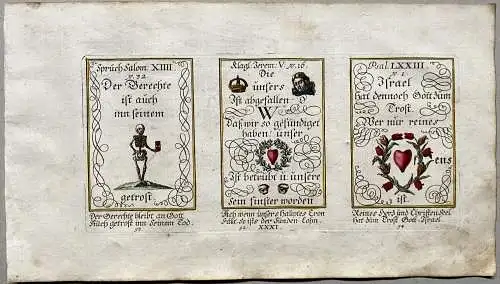 Sprüch Salom. XIIII
v. 32
Der Gerechte
ist auch
inn seinem
getrost
Der Gerechte bleibt an Gott
Auch getrost inn Seinem Tod.
Klagl. Jerem. V. v. 16.
Die
unsers
Ist abgefallen O
W
Daß wir so gesündiget
haben unser
Ist betrübt u unsere
Sein finster worden
Ach wenn unsers Hauptes Cron
Fällt so ists der Sünden Lohn.
XXXI
Psal. LXXIII.
v. 1
Israel
hat dennoch Gott zum
Trost.
Wer nur reines
ens
ist.
Reines Hertz und Christen
hat zum Trost Gott Israel